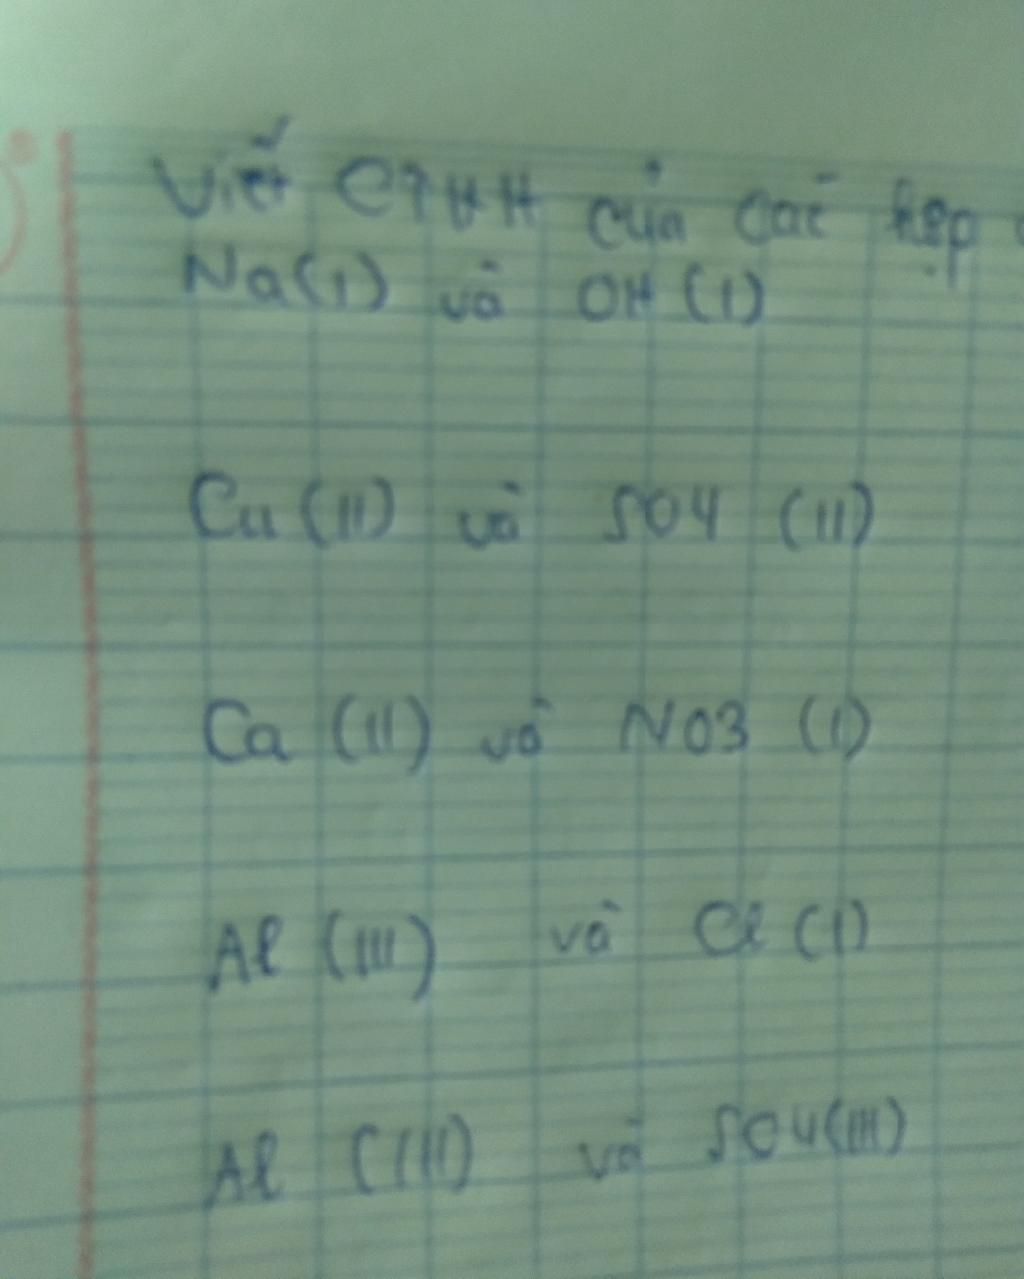 Viết CTHH của các hợp
Na(I) và OH (I)
Cu (II) và SO4 (II)
Ca (II) và NO3 (I)
Al (III) và Cl (I)
Al (III) và SO4(III)